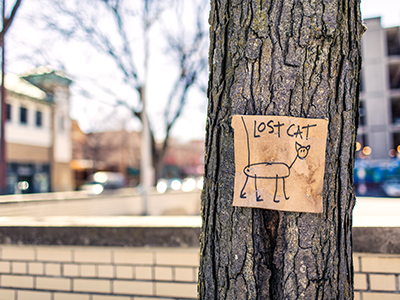 LOST CAT